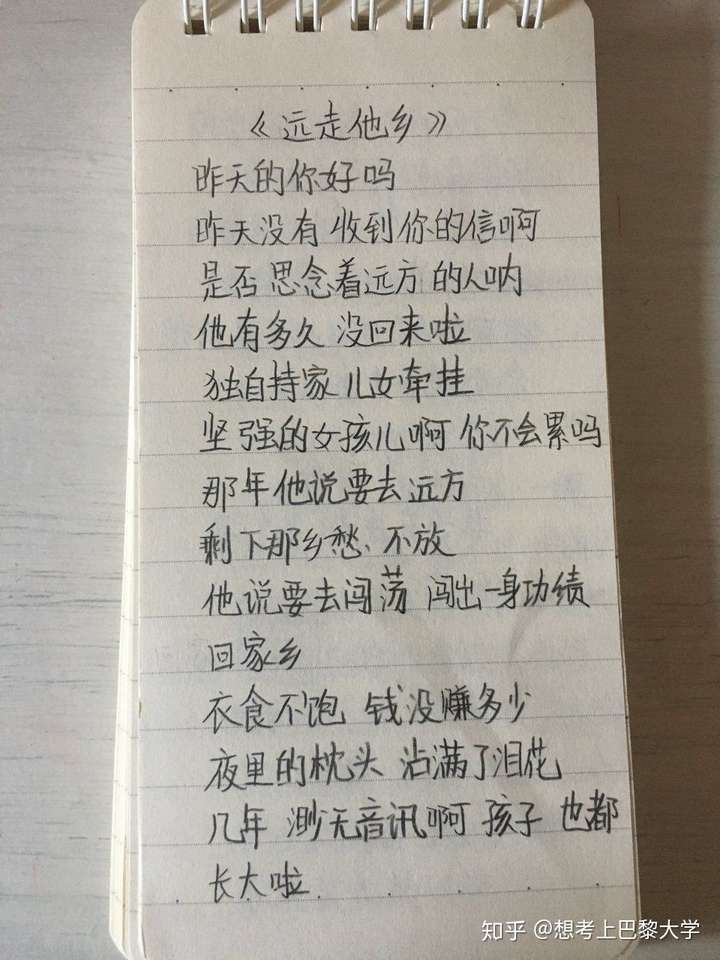 《远走他乡》
昨天的你好吗
昨天没有 收到你的信啊
是否 思念着远方 的人呐
他有多久 没回来啦
独自持家 儿女牵挂
坚强的女孩儿啊 你不会累吗
那年他说要去远方
剩下那乡愁、不放
他说要去闯荡 闯出一身功绩
回家乡
衣食不饱 钱没赚多少
夜里的枕头 沾满了泪花
几年 渺无音讯啊 孩子 也都
长大啦
知乎 @想考上巴黎大学